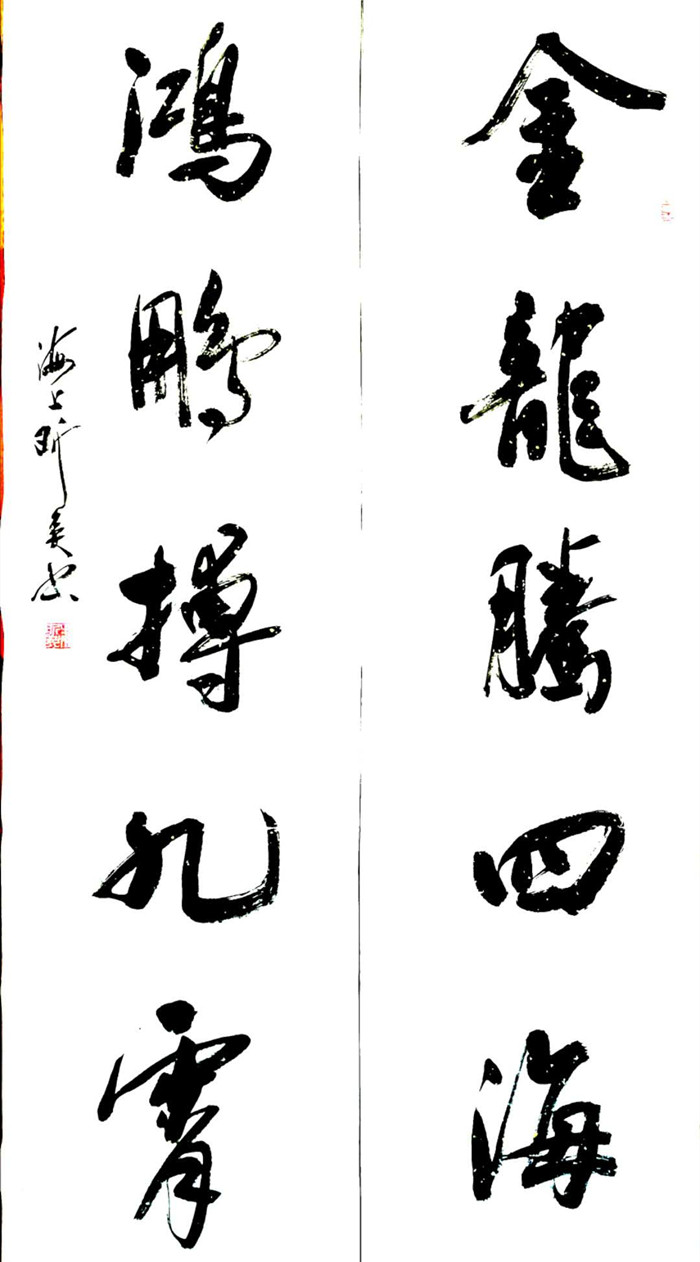 金龍騰四海
鴻鵬搏九霄
海上